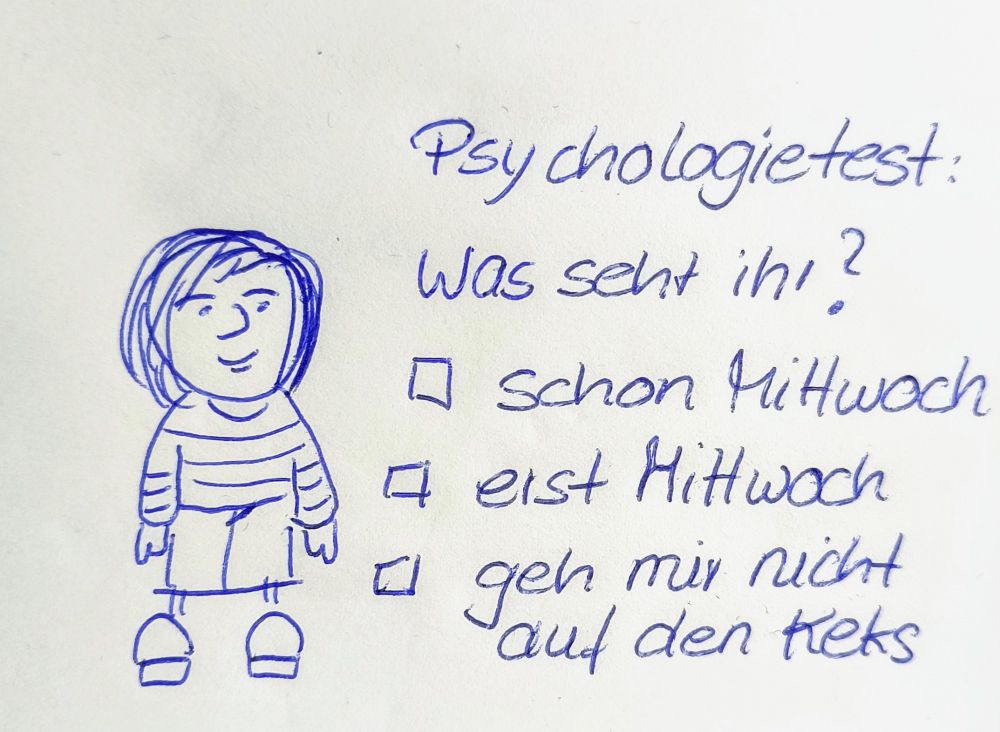 Psychologietest:
Was seht ihr?
schon Mittwoch
erst Mittwoch
geh mir nicht
auf den Keks